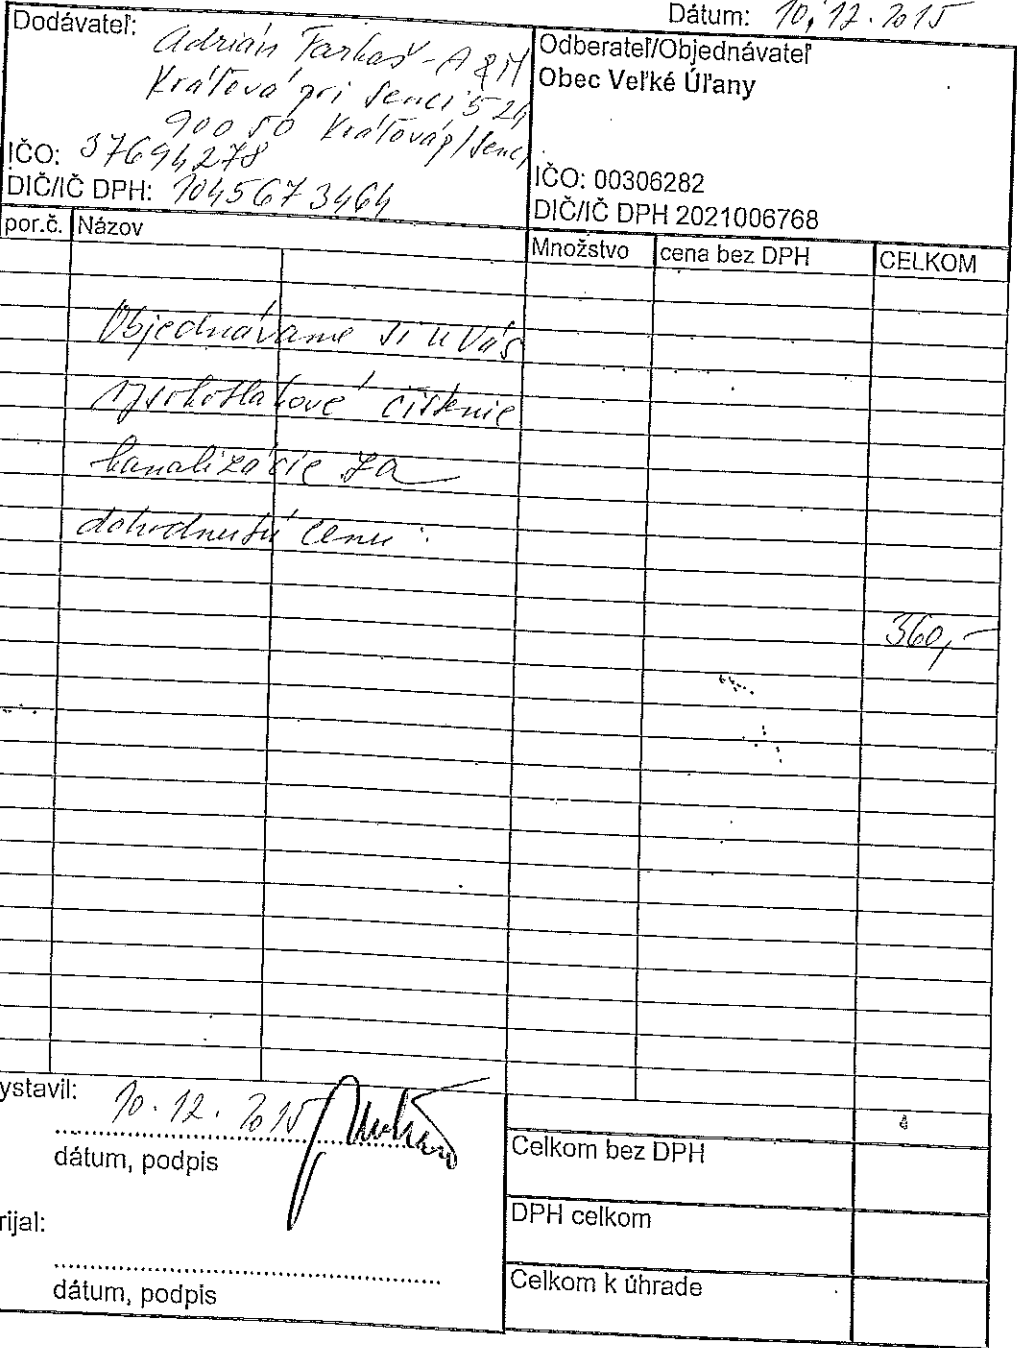 Dátum: 10.12.2015
Dodávateľ: Adrián Farkaš - A & M
Kráľová pri Senci 524
900 50 Kráľová p/Senci
IČO: 37694278
DIČ/IČ DPH: 1045673464
Odberateľ/Objednávateľ
Obec Veľké Úľany
IČO: 00306282
DIČ/IČ DPH 2021006768
por.č. Názov Množstvo cena bez DPH CELKOM
Objednávame si u Vás
vysokotlakové čistenie
kanalizácie za
dohodnutú cenu :
360,-
ystavil: 10.12.2015
dátum, podpis
rijal:
dátum, podpis
Celkom bez DPH
DPH celkom
Celkom k úhrade